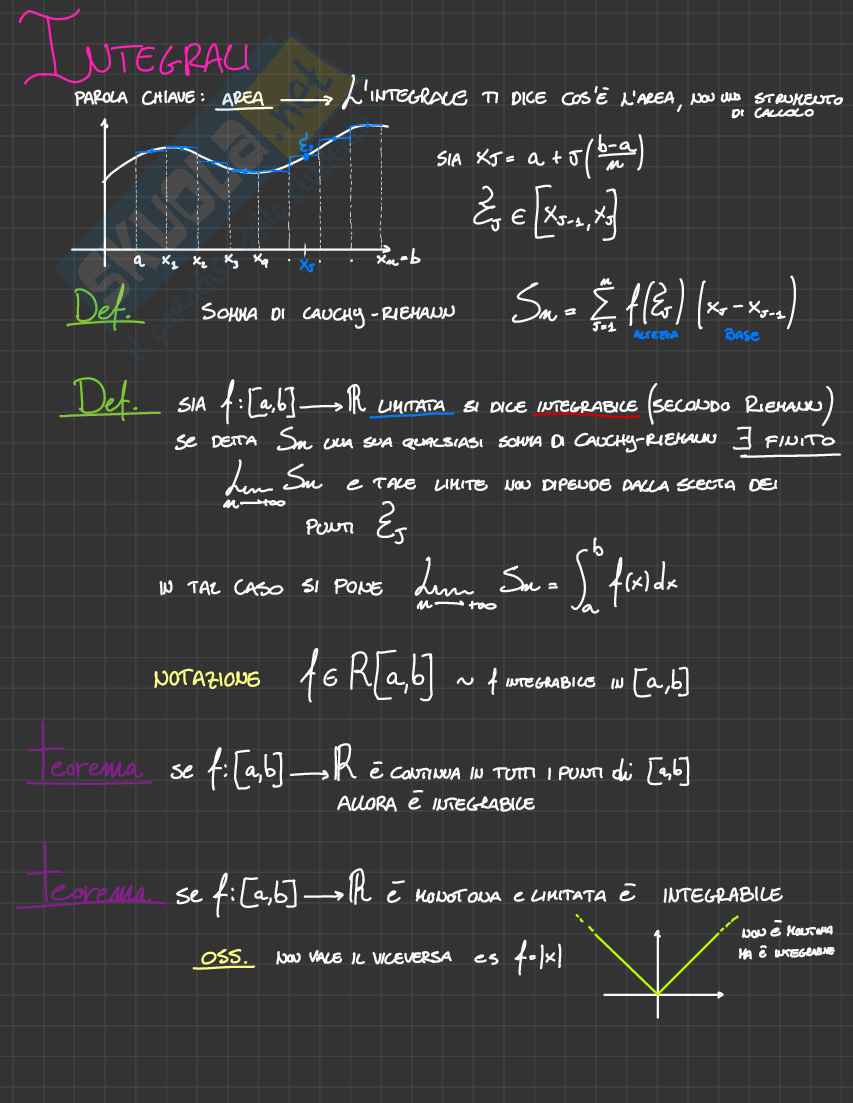 INTEGRALI
PAROLA CHIAVE: AREA → L'INTEGRALE TI DICE COS'È L'AREA, NON UNO STRUMENTO
DI CALCOLO
ξⱼ
SIA xⱼ = a + J((b-a)/n)
ξⱼ ∈ [xⱼ₋₁, xⱼ]
a x₁ x₂ x₃ x₄ . xⱼ . . xₙ=b
SKUOLA.net
Def. SOMMA DI CAUCHY-RIEMANN Sₙ = Σⁿⱼ₌₁ f(ξⱼ) (xⱼ - xⱼ₋₁)
ALTEZZA BASE
Def. SIA f:[a,b] → ℝ LIMITATA SI DICE INTEGRABILE (SECONDO RIEMANN)
SE DETTA Sₙ UNA SUA QUALSIASI SOMMA DI CAUCHY-RIEMANN ∃ FINITO
Lim n→+∞ Sₙ E TALE LIMITE NON DIPENDE DALLA SCELTA DEI
PUNTI ξⱼ
IN TAL CASO SI PONE Lim n→+∞ Sₙ = ∫ₐᵇ f(x)dx
NOTAZIONE f ∈ R[a,b] ~ f INTEGRABILE IN [a,b]
teorema SE f:[a,b] → ℝ È CONTINUA IN TUTTI I PUNTI di [a,b]
ALLORA È INTEGRABILE
teorema SE f:[a,b] → ℝ È MONOTONA E LIMITATA È INTEGRABILE
OSS. NON VALE IL VICEVERSA ES f=|x|
NON È MONOTONA
MA È INTEGRABILE